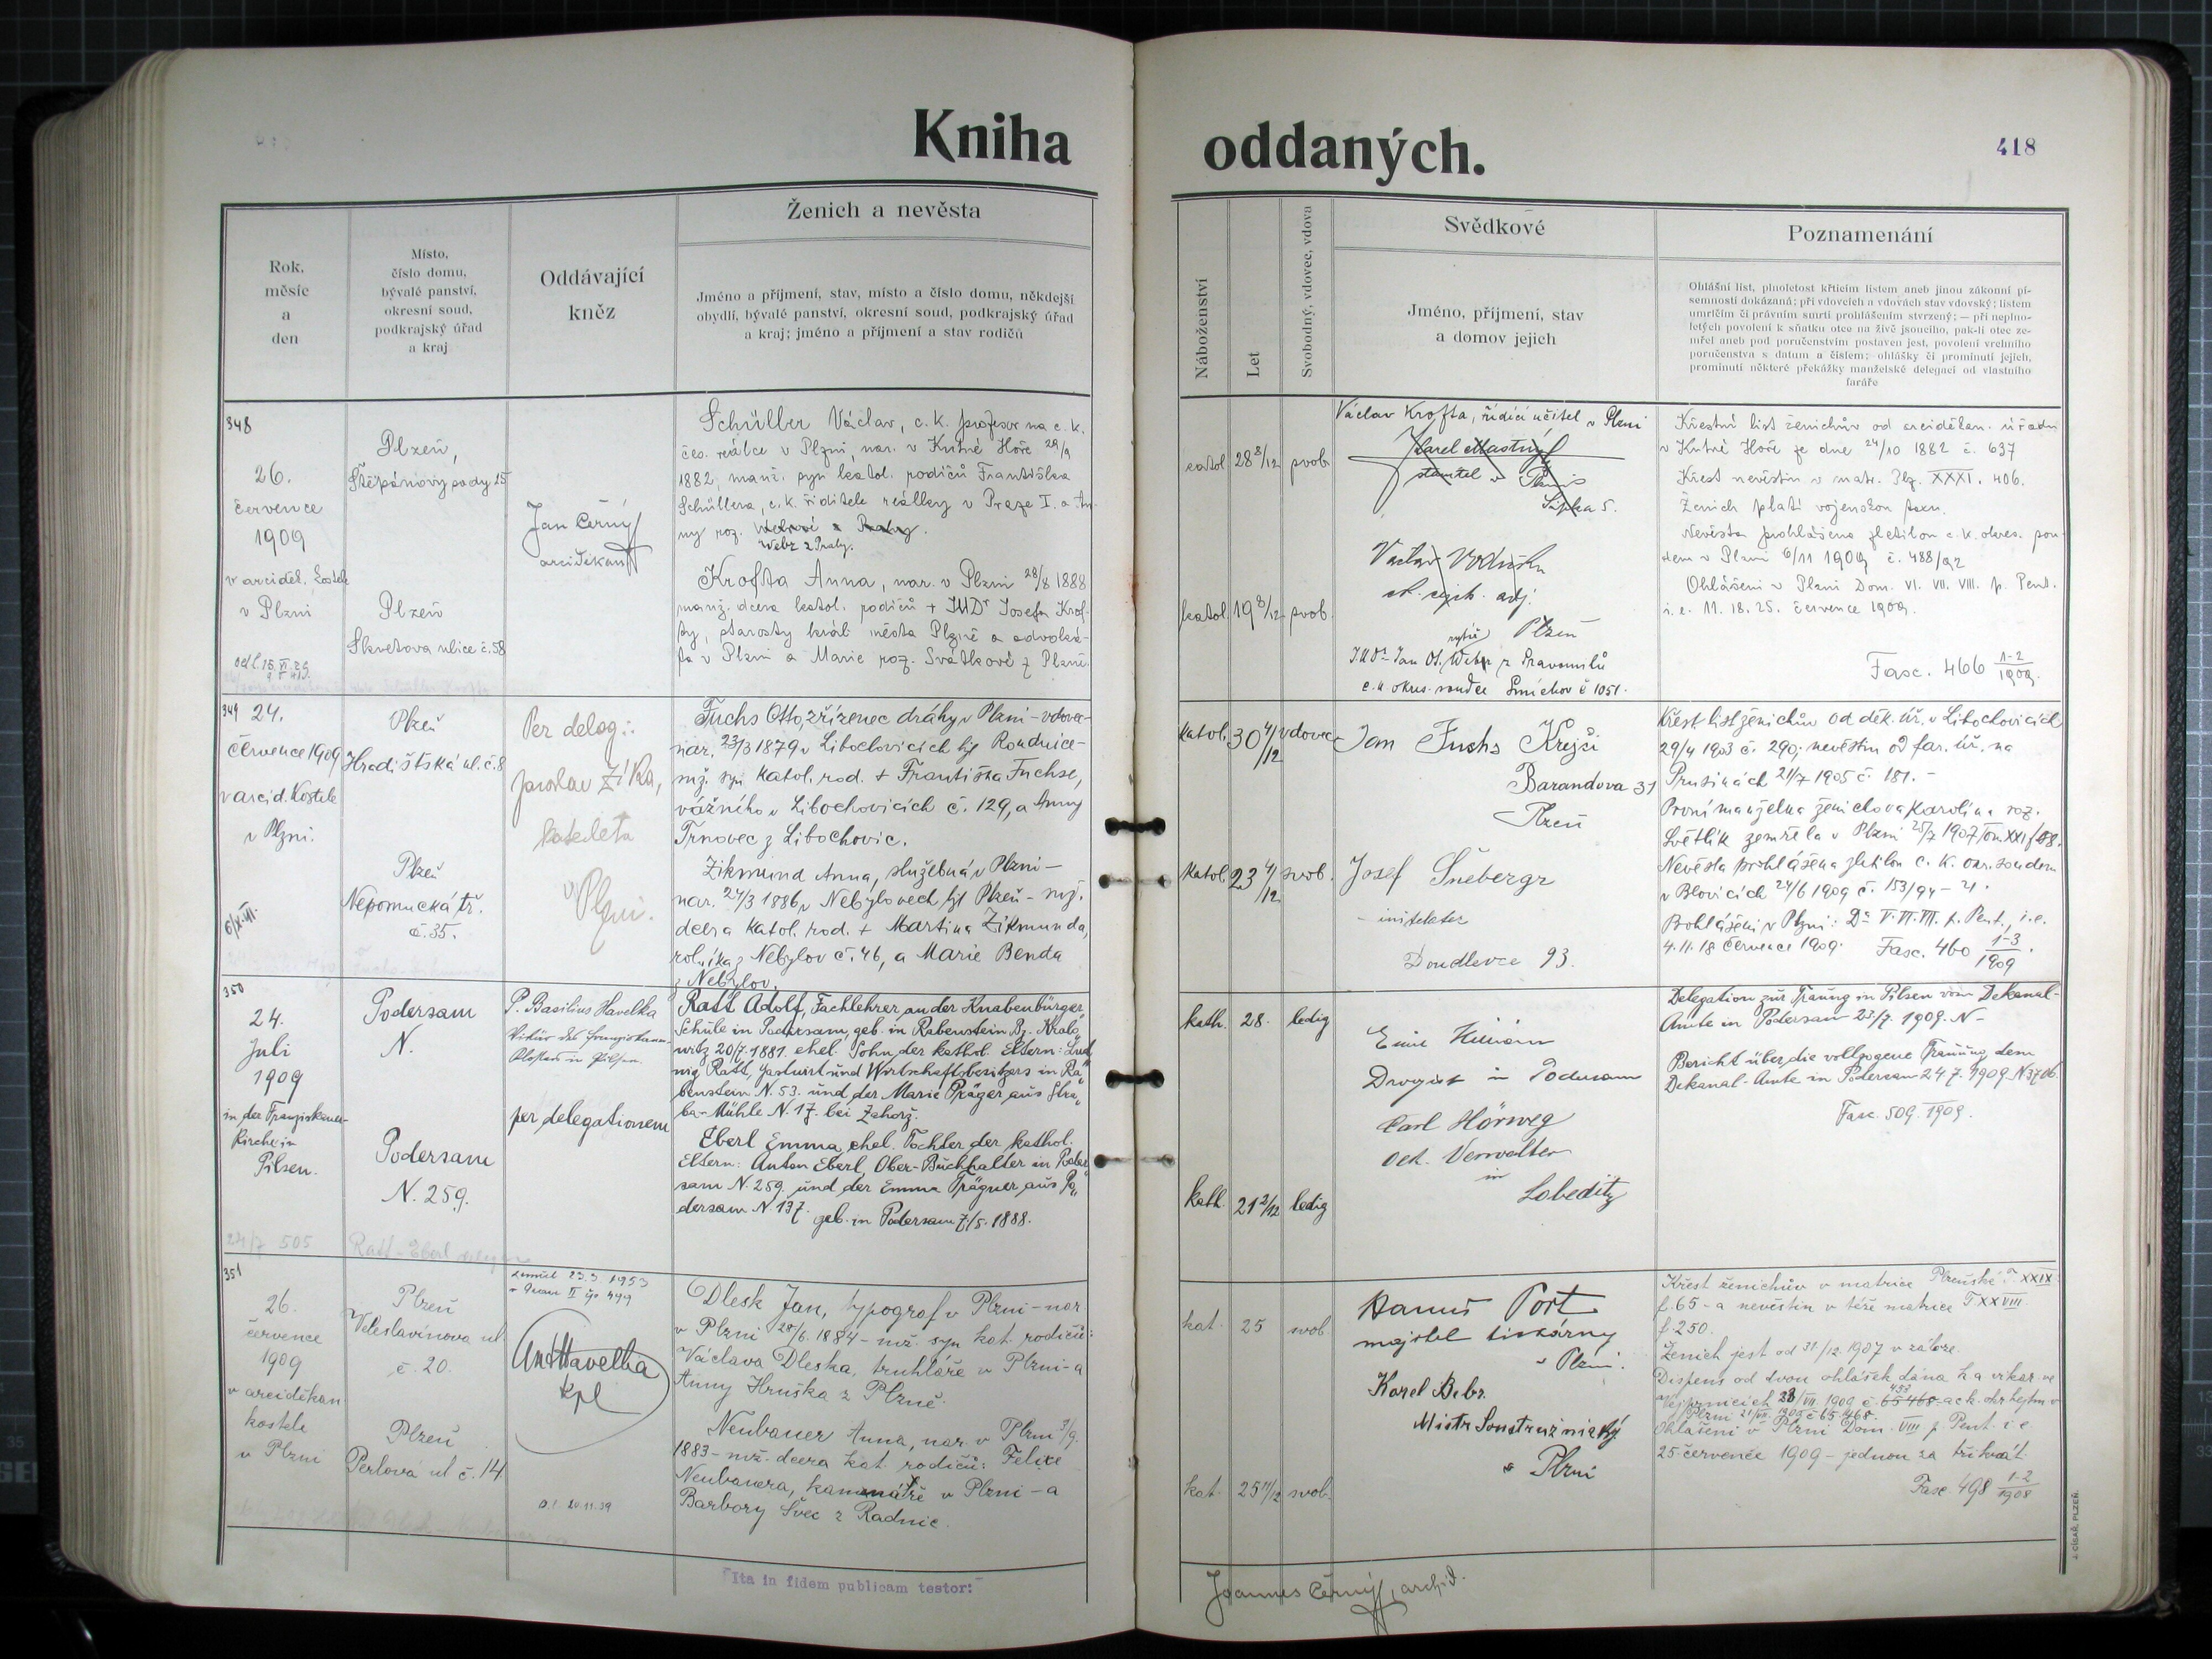 Kniha oddaných.
418
Rok,
měsíc
a
den
Místo,
číslo domu,
bývalé panství,
okresní soud,
podkrajský úřad
a kraj
Oddávající
kněz
Ženich a nevěsta
Jméno a příjmení, stav, místo a číslo domu, někdejší
obydlí, bývalé panství, okresní soud, podkrajský úřad
a kraj; jméno a příjmení a stav rodičů
Náboženství
Let
Svobodný, vdovec, vdova
Svědkové
Jméno, příjmení, stav
a domov jejich
Poznamenání
Ohlášní list, plnoletost křticím listem aneb jinou zákonní pí-
semností dokázaná; při vdovcích a vdovách stav vdovský; listem
umrlčím či právním smrti prohlášením stvrzený; — při neplno-
letých povolení k sňatku otce na živě jsoucího, pak-li otec ze-
mřel aneb pod poručenstvím postaven jest, povolení vrchního
poručenstva s datum a číslem; ohlášky či prominutí jejich,
prominutí některé překážky manželské delegací od vlastního
faráře
348
26.
července
1909
v arciděk. kostele
v Plzni
Plzeň,
Štěpánovy sady 15
Plzeň
Skretova ulice č. 58
Jan Černý
arciděkan
Schüller Václav, c. k. profesor na c. k.
čes. reálce v Plzni, nar. v Kutné Hoře 28/9
1882, manž. syn katol. rodičů Františka
Schüllera, c. k. ředitele reálky v Praze I. a An-
ny roz.
Webr z Prahy.
Krofta Anna, nar. v Plzni 28/8 1888
manž. dcera katol. rodičů + JUDr Josefa Krof-
ty, starosty král. města Plzně a advoká-
ta v Plzni a Marie roz. Svátkové z Plzně.
katol. 28 svob.
katol. 19 svob.
Václav Krofta, řídící učitel v Plzni
Karel Mastný
stavitel v Plzni
Plzeň
JUDr Jan Ot. rytíř Webr z Pravomilů
c. k. okres. soudce Smíchov č 1051.
Křestní list ženichův od arciděkan. úřadu
v Kutné Hoře ze dne 24/10 1882 č. 637
Křest nevěstin v matr. Plz. XXXI. 406.
Ženich platí vojenskou taxu.
Nevěsta prohlášena zletilou c. k. okres. sou-
dem v Plzni 6/11 1909 č. 488/92
Ohlášeni v Plzni Dom. VI. VII. VIII. p. Pent.
i. e. 11. 18. 25. července 1909.
Fasc. 466 1-2/1909.
349
24.
července 1909
v arcid. Kostele
v Plzni.
Plzeň
Hradištská ul. č. 8
Plzeň
Nepomucká tř.
č. 35.
Per deleg.:
Jaroslav Zíka,
katecheta
v Plzni.
Fuchs Otto, zřízenec dráhy v Plzni – vdovec –
nar. 23/3 1879 v Libochovicích hj. Roudnice –
mž. syn katol. rod. + Františka Fuchse,
vážného v Libochovicích č. 129, a Anny
Trnovec z Libochovic.
Zikmund Anna, služebná v Plzni –
nar. 24/3 1886 v Nebylovech hjt Plzeň – mž.
dcera katol. rod. + Martina Zikmunda,
rolníka z Nebylov č. 46, a Marie Benda
z Nebylov.
katol. 30 4/12 vdovec
katol. 23 4/12 svob.
Jan Fuchs Krejčí
Barandova 31
Plzeň
Josef Šnebergr
Doudlevce 93.
Křest. list ženichův od děk. úř. v Libochovicích
29/4 1903 č. 290; nevěstin od far. úř. na
Prusinách 21/7 1905 č. 181. –
První manželka ženichova Karolina roz.
Světlík zemřela v Plzni 25/7 1907
Nevěsta prohlášena zletilou c. k. okr. soudem
v Blovicích 24/6 1909 č. 153/94 – 21.
Prohlášeni v Plzni: Dᵃ V. VI. VII. p. Pent., i. e.
4. 11. 18 července 1909. Fasc. 460 1-3/1909.
350
24.
Juli
1909
in der Franziskaner-
Kirche in
Pilsen.
Podersam
N.
Podersam
N. 259.
P. Basilius Havelka
Vikär des Franziskaner-
Klosters in Pilsen.
per delegationem
Ratt Adolf, Fachlehrer an der Knabenbürger-
Schule in Podersam, geb. in Rabenstein Bz. Kralo-
witz 20/7. 1881. ehel. Sohn der kathol. Eltern: Lud-
wig Ratt, Gastwirt und Wirtschaftsbesitzers in Ra-
benstein N. 53. und der Marie Präger aus Stra-
ba-Mühle N. 17. bei Zahorz.
Eberl Emma, ehel. Tochter der kathol.
Eltern: Anton Eberl, Ober-Buchhalter in Poder-
sam N. 259. und der Emma Prägner aus Po-
dersam N. 137. geb. in Podersam 7/5. 1888.
24/7 505 Ratt – Eberl
kath. 28. ledig
kath. 21 2/12 ledig
Drogist in Podersam
Carl Hörweg
Oek. Verwalter
in
Lobeditz
Delegation zur Trauung in Pilsen vom Dekanal-
Amte in Podersam 23/7. 1909. N –
Bericht über die vollzogene Trauung dem
Dekanal-Amte in Podersam 24 7. 1909. N 3706.
Fasc. 509. 1909.
351
26.
července
1909
v arciděkan
kostele
v Plzni
Plzeň
Veleslavínova ul.
č. 20.
Plzeň
Perlova ul č. 14
zemřel 23.3. 1953
Ant Havelka
kpl
Dlesk Jan, typograf v Plzni – nar
v Plzni 28/6. 1884 – mž. syn kat. rodičů:
Václava Dleska, truhláře v Plzni – a
Anny Hruška z Plzně.
Neubauer Anna, nar. v Plzni 3/9.
1883 – mž. dcera kat. rodičů: Felixe
Neubauera, kamnáře v Plzni – a
Barbory Švec z Radnic.
kat. 25 svob.
kat. 25 svob.
Hanuš Port
majitel tiskárny
v Plzni.
Karel Bebr.
Mistr Soustružnický
v Plzni
Křest ženichův v matrice Plzeňské T XXIX.
f. 65 – a nevěstin v téže matrice T XXVIII.
f. 250.
Ženich jest od 31/12. 1907 v záloze.
Dispens od dvou ohlášek dána
Ohlášeni v Plzni Dom. VIII p Pent i e
25 července 1909 – jednou za třikrát.
Fasc. 498 1-2/1908
Ita in fidem publicam testor:
Joannes Černý, archid.
J. CÍSAŘ, PLZEŇ.